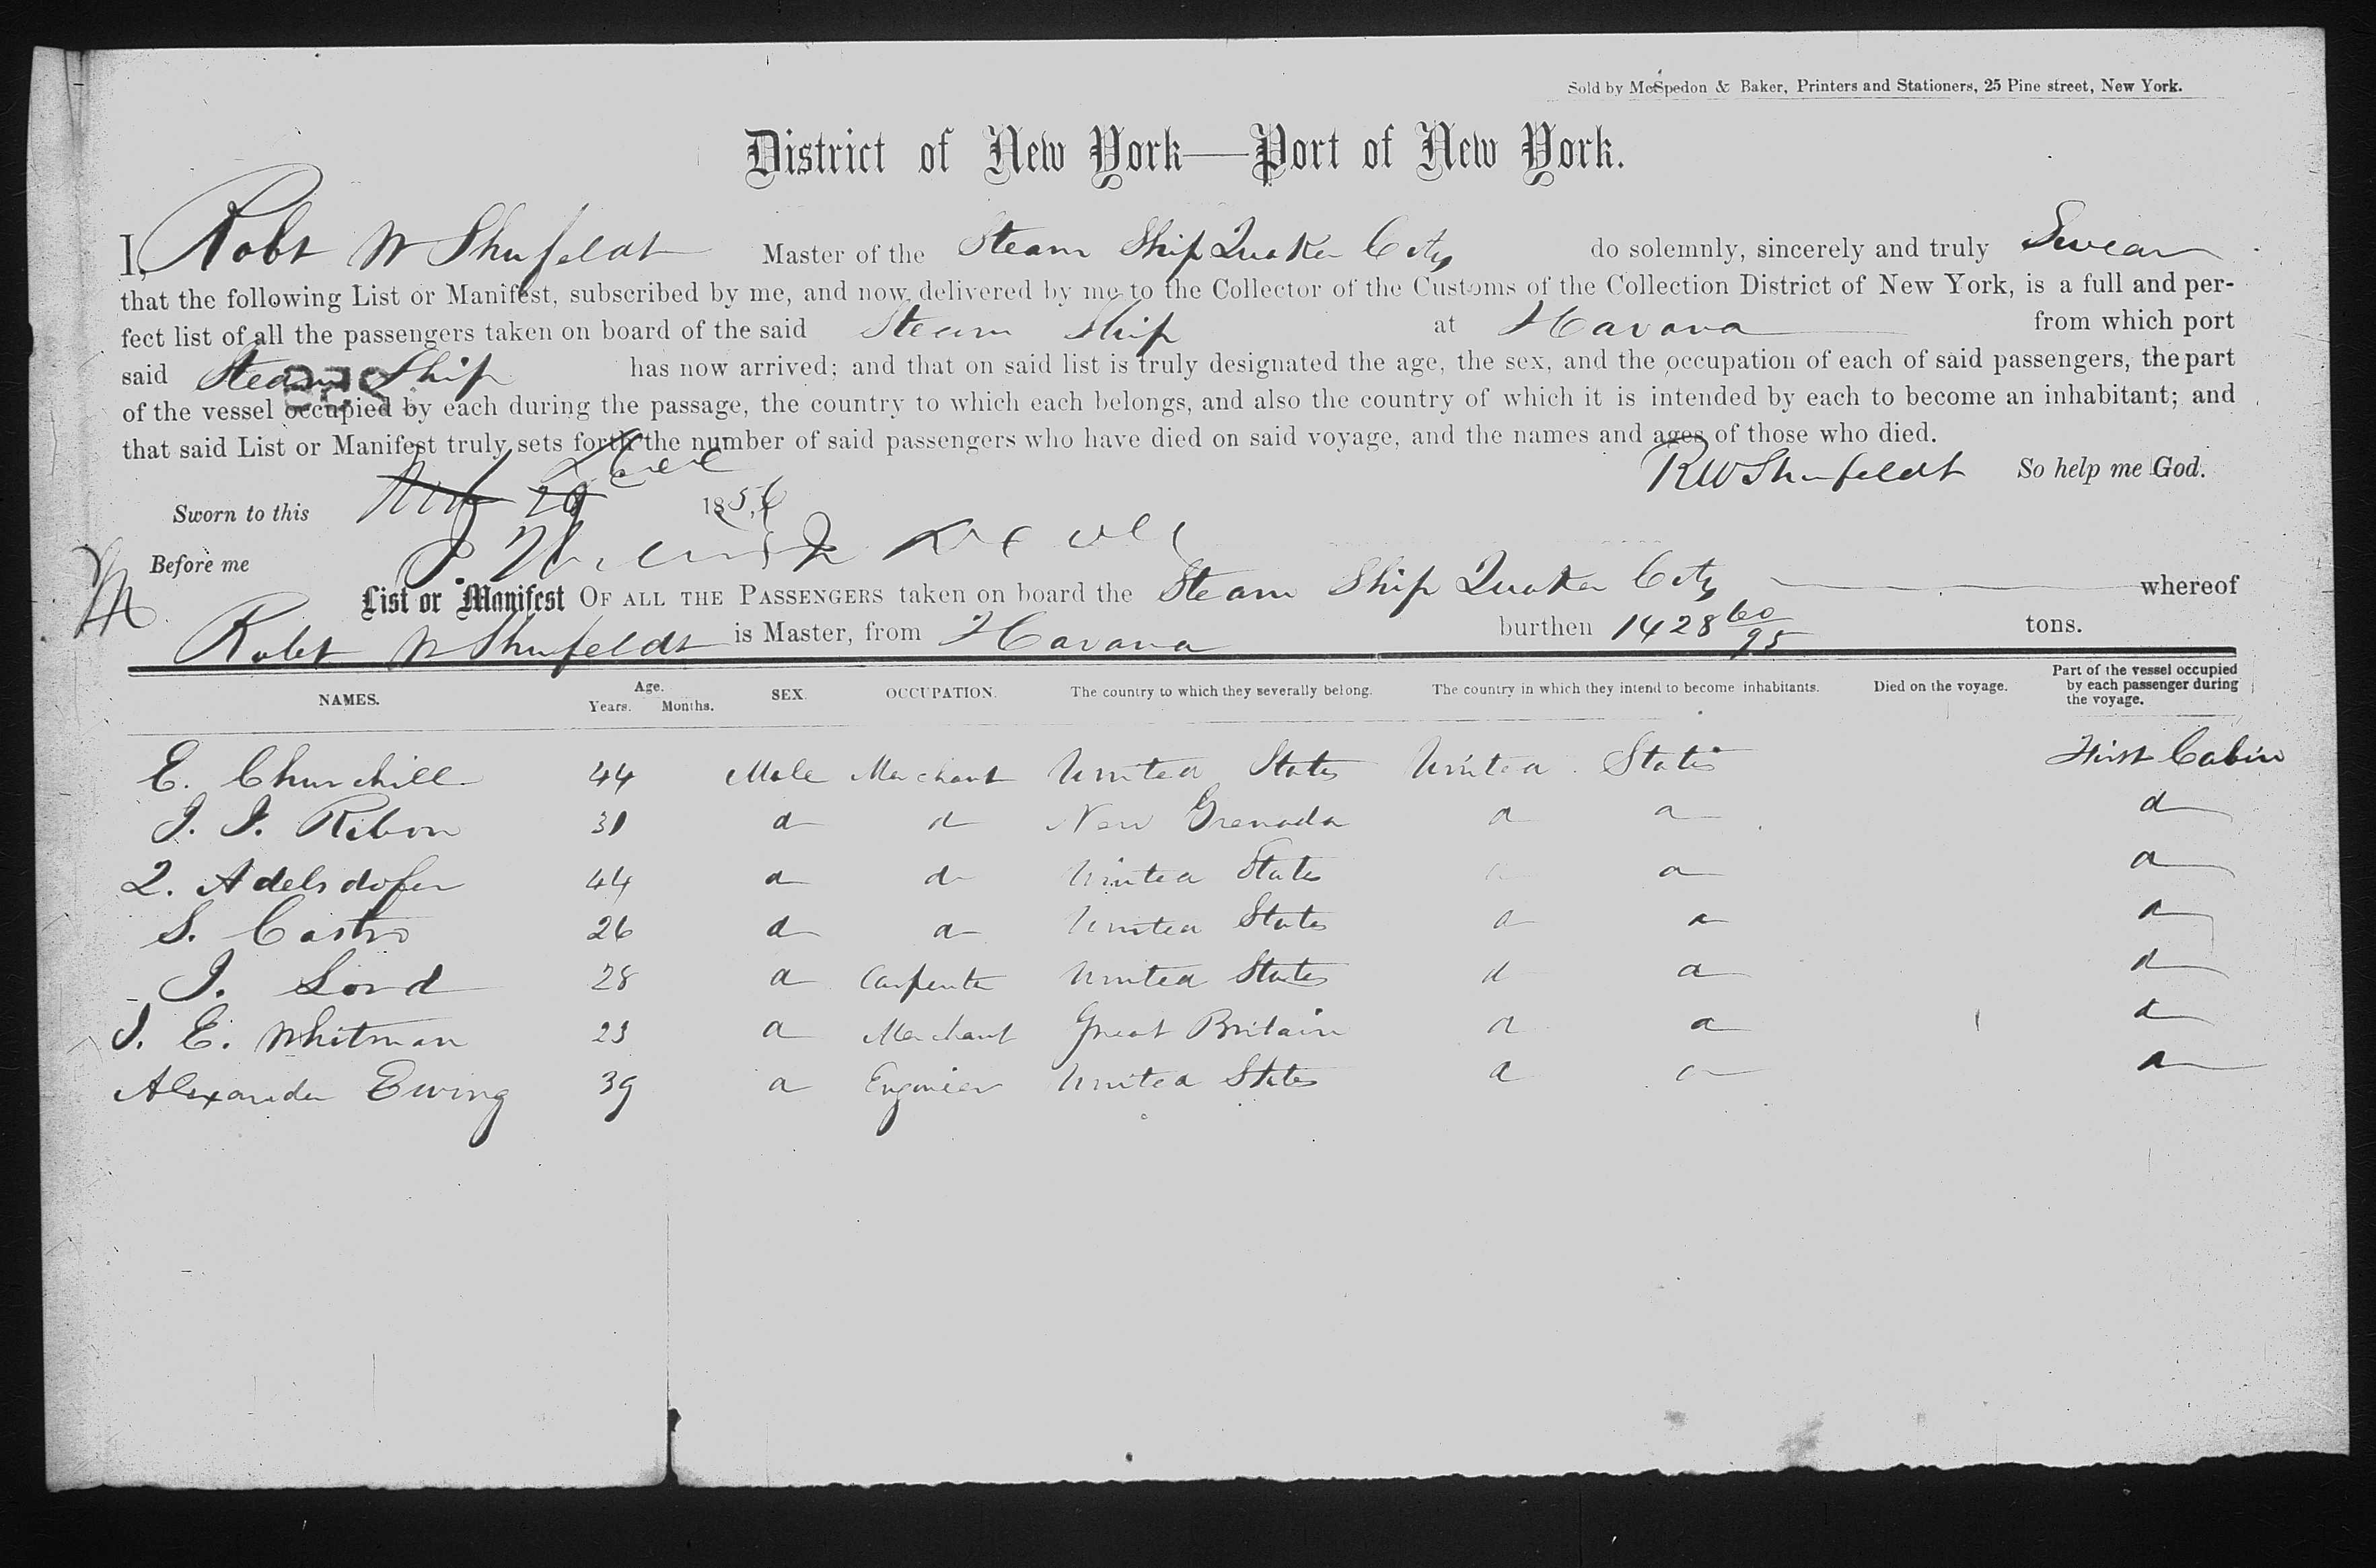 Sold by McSpedon & Baker, Printers and Stationers, 25 Pine street, New York.
District of New York—Port of New York.
I, Robt W Shufeldt Master of the Steam Ship Quaker City do solemnly, sincerely and truly Swear
that the following List or Manifest, subscribed by me, and now delivered by me to the Collector of the Customs of the Collection District of New York, is a full and per-
fect list of all the passengers taken on board of the said Steam Ship at Havana from which port
said Steam Ship has now arrived; and that on said list is truly designated the age, the sex, and the occupation of each of said passengers, the part
of the vessel occupied by each during the passage, the country to which each belongs, and also the country of which it is intended by each to become an inhabitant; and
that said List or Manifest truly sets forth the number of said passengers who have died on said voyage, and the names and ages of those who died.
RW Shufeldt So help me God.
Sworn to this 1856
Before me
List or Manifest OF ALL THE PASSENGERS taken on board the Steam Ship Quaker City whereof
Robt W Shufeldt is Master, from Havana burthen 1428 60/95 tons.
NAMES. Age. Years. Months. SEX. OCCUPATION. The country to which they severally belong. The country in which they intend to become inhabitants. Died on the voyage. Part of the vessel occupied by each passenger during the voyage.
E. Churchill 44 Male Merchant United States United States First Cabin
J. J. Ribon 31 d d New Grenada d d d
L. Adelsdofer 44 d d United States d d
S. Castro 26 d d United States d d d
J. Lord 28 d Carpenter United States d d d
J. E. Whitman 23 d Merchant Great Britain d d d
Alexander Ewing 39 d Engineer United States d d d